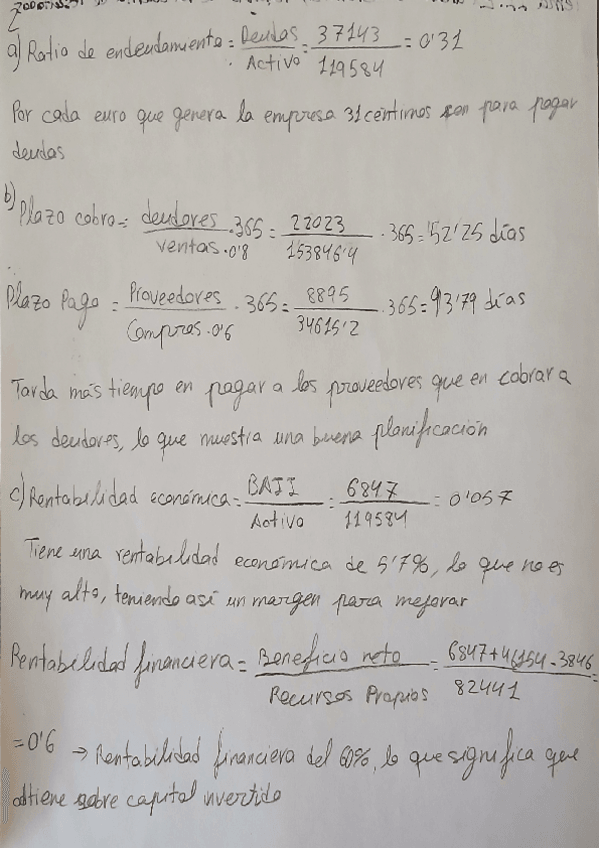 2
a) Ratio de endeudamiento = Deudas / Activo = 37143 / 119584 = 0'31
Por cada euro que genera la empresa 31 céntimos son para pagar
deudas
b)
Plazo cobro = deudores / ventas · 0'8 · 365 = 22023 / 153846'4 · 365 = 52'25 días
Plazo Pago = Proveedores / Compras · 0'6 · 365 = 8895 / 34615'2 · 365 = 93'79 días
Tarda más tiempo en pagar a los proveedores que en cobrar a
los deudores, lo que muestra una buena planificación
c) Rentabilidad económica = BAII / Activo = 6847 / 119584 = 0'057
Tiene una rentabilidad económica de 5'7%, lo que no es
muy alto, teniendo así un margen para mejorar
Rentabilidad financiera = Beneficio neto / Recursos Propios = 6847 + 46154 - 3846 / 82441 =
= 0'6 → Rentabilidad financiera del 60%, lo que significa que
obtiene sobre capital invertido